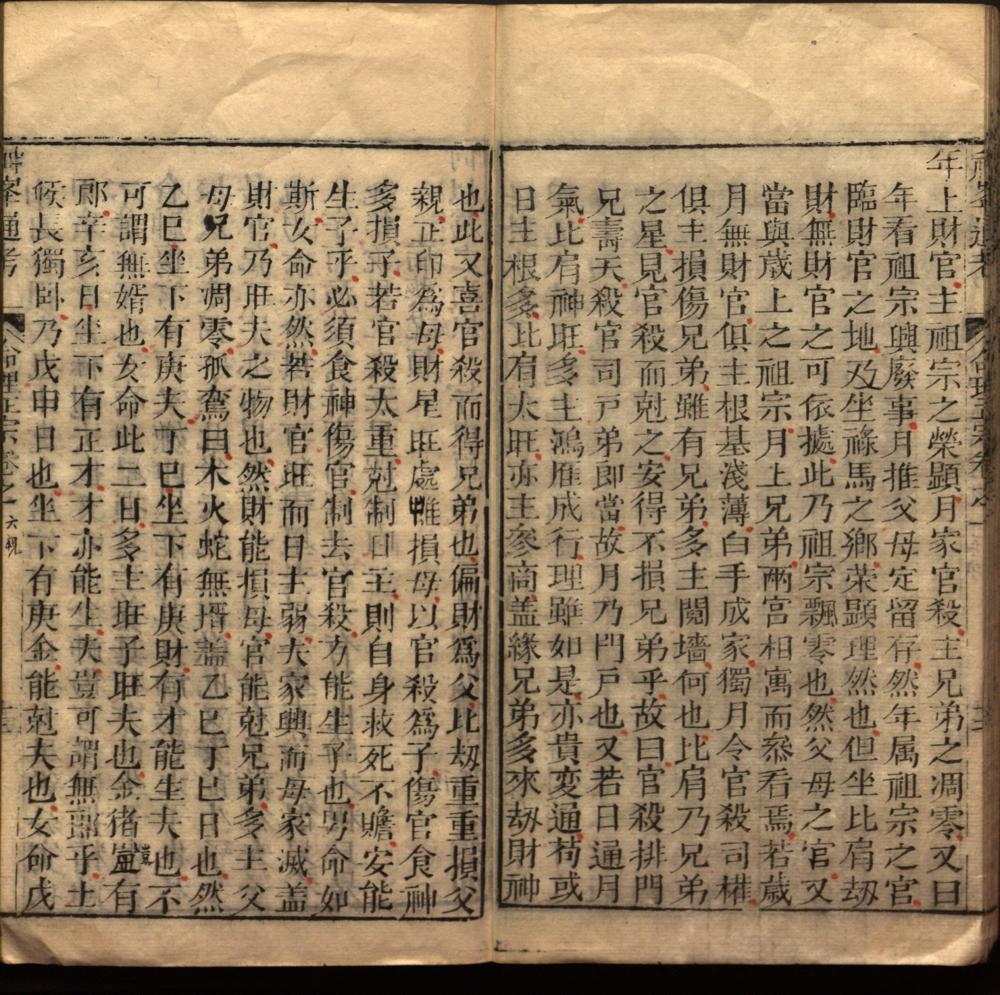 年上財官主祖宗之榮顯月家官殺主兄弟之凋零又曰
年看祖宗興廢事月推父母定留存然年属祖宗之官
臨財官之地及坐祿馬之鄉荣顕理然也但坐比肩刼
財無財官之可依據此乃祖宗飄零也然父母之官又
當與歲上之祖宗月上兄弟兩宮相寓而叅看焉若歲
月無財官俱主根基淺薄白手成家獨月令官殺司權
俱主損傷兄弟雖有兄弟多主鬩墻何也比肩乃兄弟
之星見官殺而尅之安得不損兄弟乎故曰官殺排門
兄壽夭殺官司戸弟郎當故月乃門戸也又若日通月
氣比肩神旺多主鴻鴈成行理雖如是亦貴変通苟或
日主根多比肩太旺亦主參商盖緣兄弟多來刼財神
也此又喜官殺而得兄弟也偏財爲父比刼重重損父
親正印為母財星旺處雔損母以官殺爲子傷官食神
多損子若官殺太重尅制日主則自身救死不贍安能
生子乎必須食神傷官制去官殺方能生子也男命如
斯女命亦然若財官旺而日主弱夫家興而母家滅盖
財官乃旺夫之物也然財能損母官能尅兄弟多主父
母兄弟凋零孤鸞曰木火蛇無壻盖乙巳丁巳日也然
乙巳坐下有庚夫丁巳坐下有庚財有才能生夫也不
可謂無婿也女命此二日多主旺子旺夫也金猪豈有
郎辛亥日坐下有正才才亦能生夫豈可謂無郎乎土
候長獨卧乃戊申日也坐下有庚金能尅夫也女命戊
神峯通考
六親